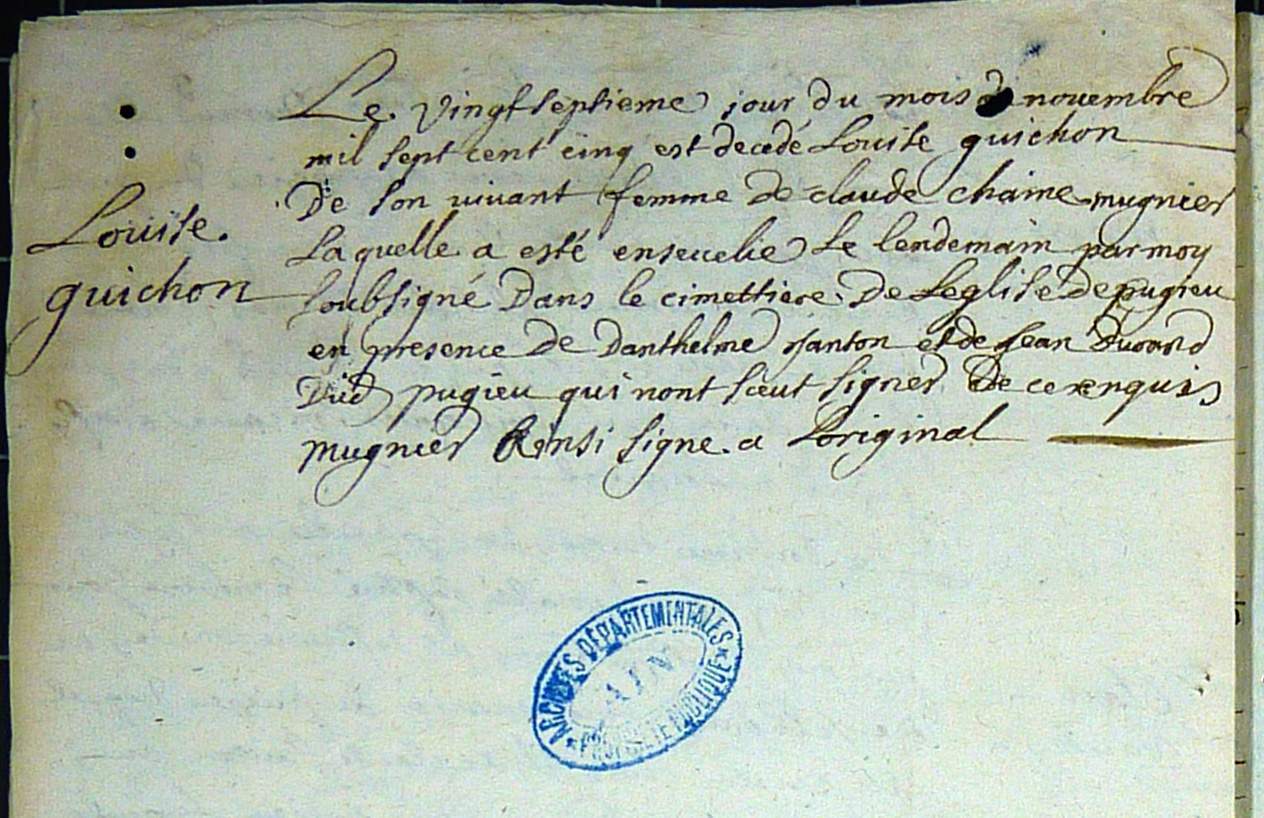 Louise.
guichon
Le vingt septieme jour du mois de novembre
mil sept cent cinq est decedé Louise guichon
De son vivant femme de claude chaine mugnier
Laquelle a esté ensevelie Le lendemain par moy
soubsigné Dans le cimettiere De Leglise de pugieu
en presence de Danthelme janton et de jean Durand
Dud pugieu qui nont sceut signer de ce enquis
mugnier Ainsi signe a Loriginal
ARCHIVES DÉPARTEMENTALES
AIN
* PROPRIETE PUBLIQUE *